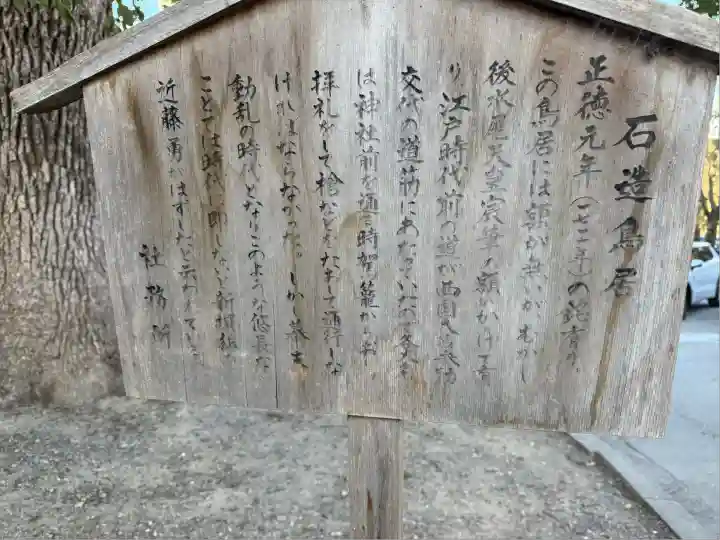 石造鳥居
正徳元年(一七一一年)の銘有り、
この鳥居には額が無いが、むかし
後水尾天皇宸筆の額がかけて有
り、江戸時代、前の道が西国大名の
交代の道筋にあたっていたので大名
は神社前を通る時駕籠から出
拝礼をして槍などをたおして通行しな
ければならなかった。しかし幕末
動乱の時代となりこのような悠長な
ことでは時代に即しないと新撰組、
近藤勇がはずしたと云われている。
社務所